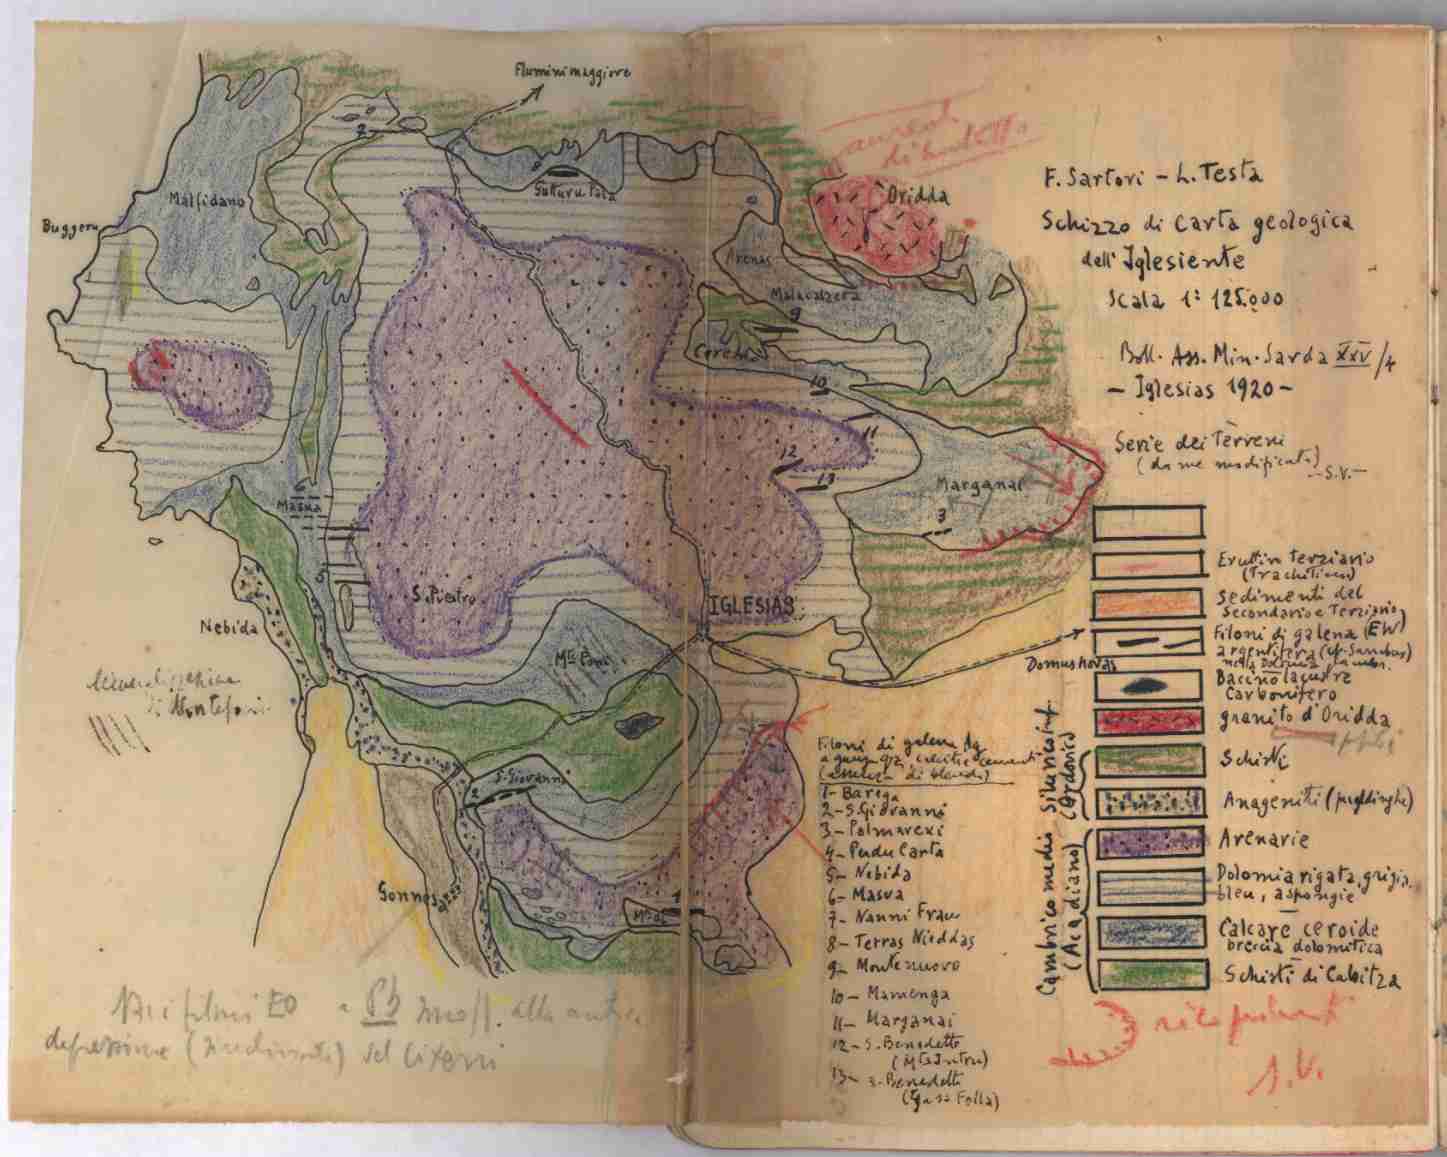 Fluminimaggiore
Buggeru
Malfidano
7
8
Gutturu Pala
Oridda
Arenas
Malacalzetta
9
Coremò
10
11
12
13
Marganai
3
6
Masua
5
S. Pietro
IGLESIAS
Nebida
Mte Poni
Domusnovas
S. Giovanni
2
Gonnesa
1
F. Sartori - L. Testa
Schizzo di Carta geologica
dell'Iglesiente
Scala 1:125.000
Boll. Ass. Min. Sarda XXV/4
- Iglesias 1920 -
Serie dei Terreni
(da me modificata)
- S.V. -
Eruttivo terziario
(Trachitico)
Sedimenti del
secondario e Terziario
Filoni di galena (EW)
argentifera
nella Dolomia
Bacino lacustre
Carbonifero
granito d'Oridda
Schisti
Anageniti (puddinghe)
Arenarie
Dolomia rigata, grigia,
bleu, a spongie
Calcare ceroide
breccia dolomitica
Schisti di Cabitza
Silurico inf.
(Ordovic)
Cambrico medio
(Acadiano)
Filoni di galena Ag
(assenza di blenda)
1- Barega
2- S. Giovanni
3- Palmarexi
4- Perdu Carta
5- Nebida
6- Masua
7- Nanni Frau
8- Terras Nieddas
9- Montenuovo
10- Mamenga
11- Marganai
12- S. Benedetto
13- S. Benedetto
di Montefoni
depressione
del Cixerri
S.V.